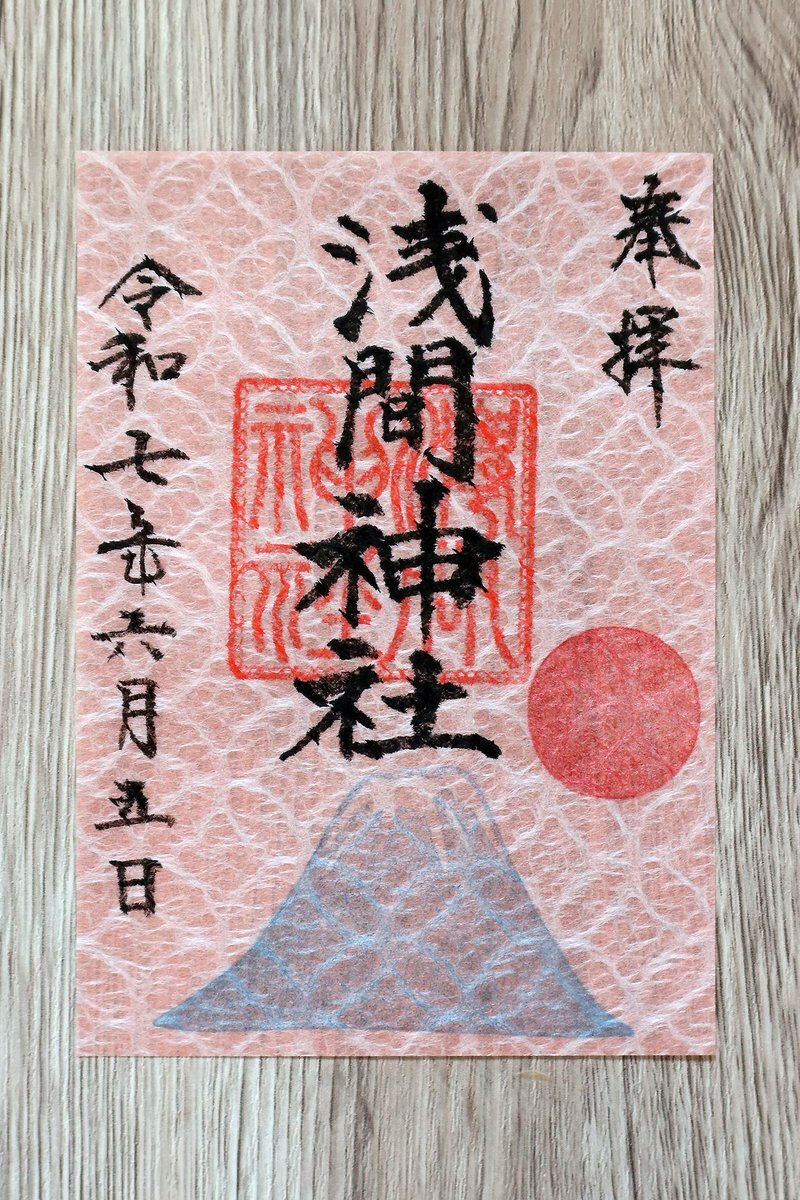 奉拝
浅間神社
令和七年六月五日